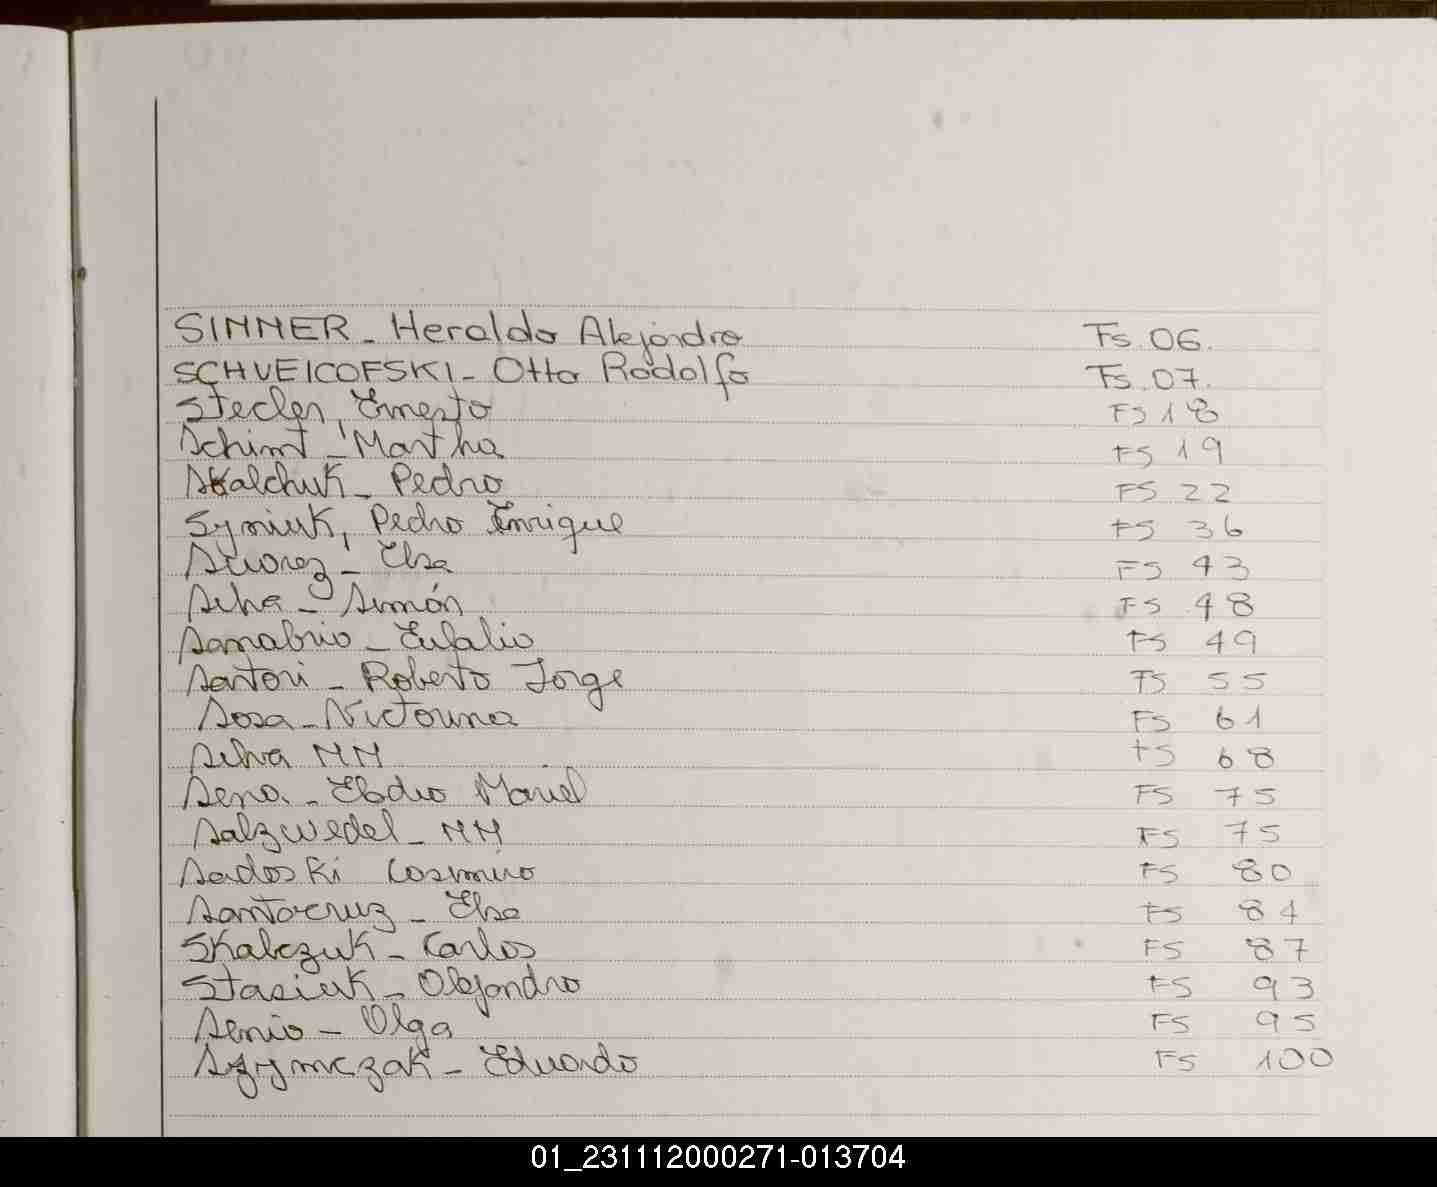 SINNER - Heraldo Alejandro Fs. 06.
SCHVEICOFSKI - Otto Rodolfo Fs. 07.
Stecler, Ernesto FS 18
Schimt - Martha FS 19
Skalchuk - Pedro FS 22
Syniuk, Pedro Enrique FS 36
Suarez - Elsa FS 43
Silva - Simón FS 48
Sanabrio - Eulalio FS 49
Sartori - Roberto Jorge FS 55
Sosa - Victorina FS 61
Silva NN FS 68
Sena - Mariel FS 75
Salzwedel - NN FS 75
Sadoski Cosmiro FS 80
Santacruz - Elsa FS 84
Skalczuk - Carlos FS 87
Stasiuk - Alejandro FS 93
Senio - Olga FS 95
Szymczak - Eduardo FS 100
01_231112000271-013704